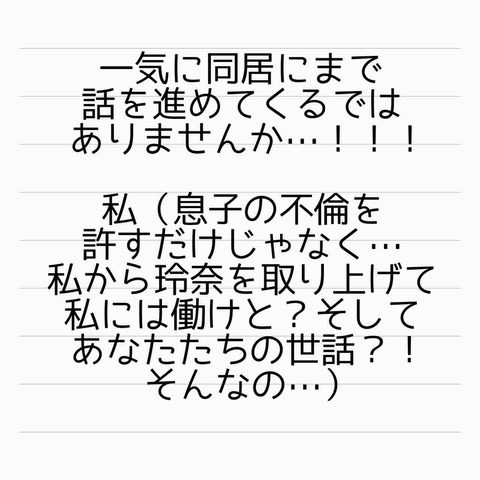 一気に同居にまで
話を進めてくるでは
ありませんか…！！！
私（息子の不倫を
許すだけじゃなく…
私から玲奈を取り上げて
私には働けと？そして
あなたたちの世話？！
そんなの…）